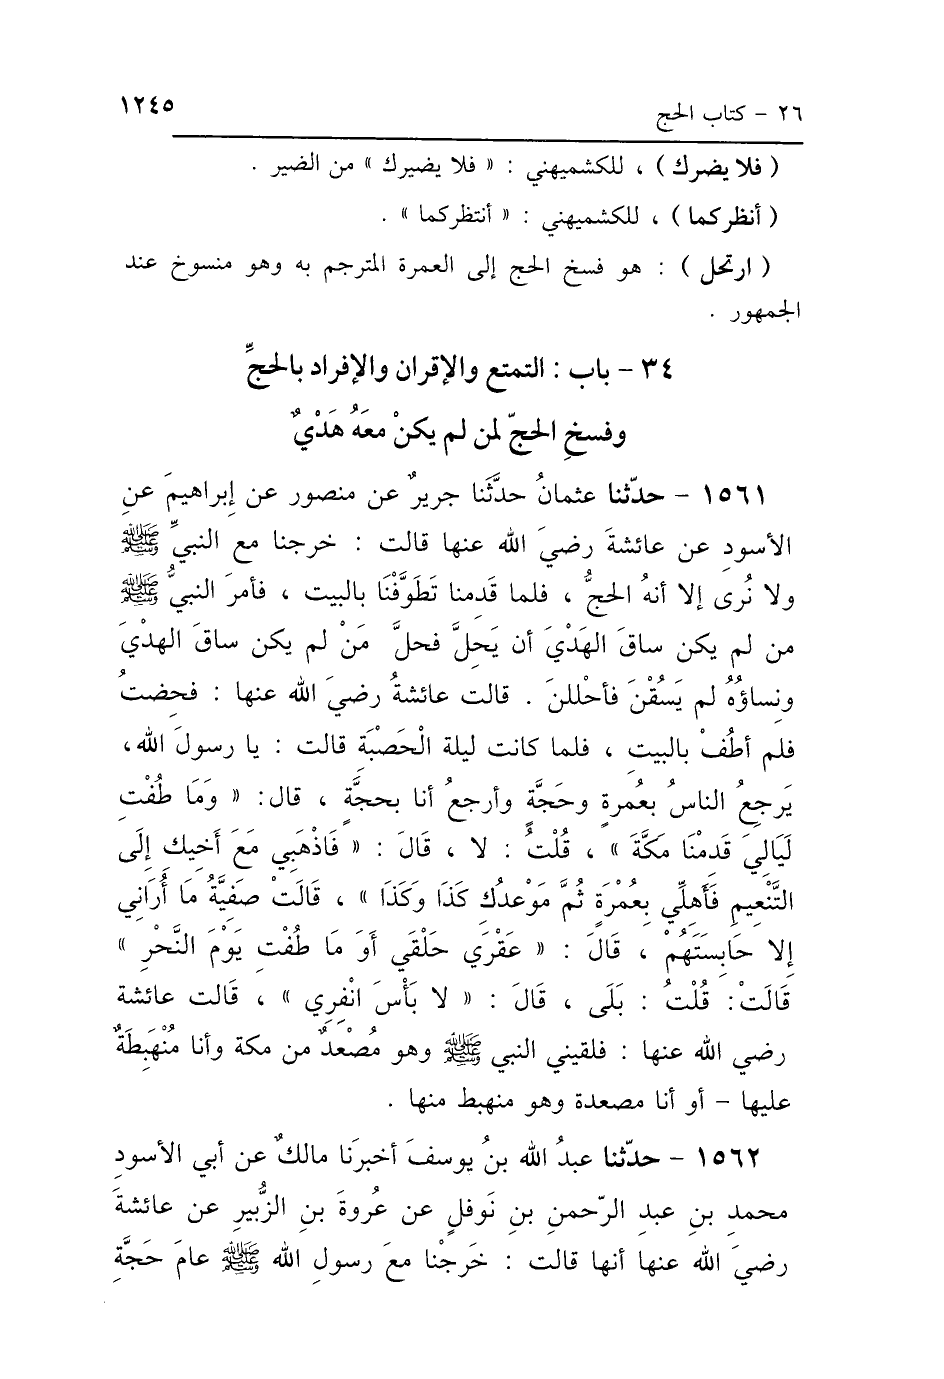 ٢٦ – كتاب الحج ١٢٤٥
( فلا يضرك ) ، للكشميهني : « فلا يضيرك » من الضير .
( أنظركما ) ، للكشميهني : « أنتظركما » .
( ارتحل ) : هو فسخ الحج إلى العمرة المترجم به وهو منسوخ عند
الجمهور .
٣٤ – باب : التمتع والإقران والإفراد بالحجِّ
وفسخِ الحجّ لمن لم يكنْ معَهُ هَدْيٌ
١٥٦١ – حدّثنا عثمانُ حدَّثَنا جريرٌ عن منصور عن إبراهيمَ عنِ
الأسودِ عن عائشةَ رضيَ الله عنها قالت : خرجنا مع النبيِّ ﷺ
ولا نُرى إلا أنهُ الحجُّ ، فلما قَدمنا تَطَوَّفْنَا بالبيت ، فأمرَ النبيُّ ﷺ
من لم يكن ساقَ الهَدْيَ أن يَحِلَّ فحلَّ مَنْ لم يكن ساقَ الهدْيَ
ونساؤُهُ لم يَسُقْنَ فأحْللنَ . قالت عائشةُ رضيَ الله عنها : فحِضتُ
فلم أطُفْ بالبيتِ ، فلما كانت ليلة الْحَصْبَةِ قالت : يا رسولَ الله،
يَرجعُ الناسُ بعُمرةٍ وحَجَّةٍ وأرجعُ أنا بحجَّةٍ ، قال: « وَمَا طُفْت
لَيَالِيَ قَدِمْنَا مَكَّةَ » ، قُلْتُ : لا ، قَالَ : « فَاذْهَبِي مَعَ أَخِيكِ إِلَى
التَّنْعِيمِ فَأَهِلِّي بِعُمْرَةٍ ثُمَّ مَوْعِدُك كَذَا وَكَذَا » ، قَالَتْ صَفِيَّةُ مَا أُرَانِي
إِلا حَابِسَتَهُمْ ، قَالَ : « عَقْرَي حَلْقَي أَوَ مَا طُفْت يَوْمَ النَّحْرِ »
قَالَتْ: قُلْتُ : بَلَى ، قَالَ : « لا بَأْسَ انْفِرِي » ، قَالت عائشة
رضي الله عنها : فلقيني النبي ﷺ وهو مُصْعِدٌ من مكة وأنا مُنْهَبِطَةٌ
عليها – أو أنا مصعدة وهو منهبط منها .
١٥٦٢ – حدّثنا عبدُ الله بنُ يوسفَ أخبرَنا مالكٌ عن أبي الأسودِ
محمدِ بنِ عبدِ الرّحمنِ بنِ نَوفلٍ عن عُروةَ بنِ الزُّبيرِ عن عائشةَ
رضيَ الله عنها أنها قالت : خَرجْنا معَ رسولِ الله ﷺ عامَ حَجَّةِ